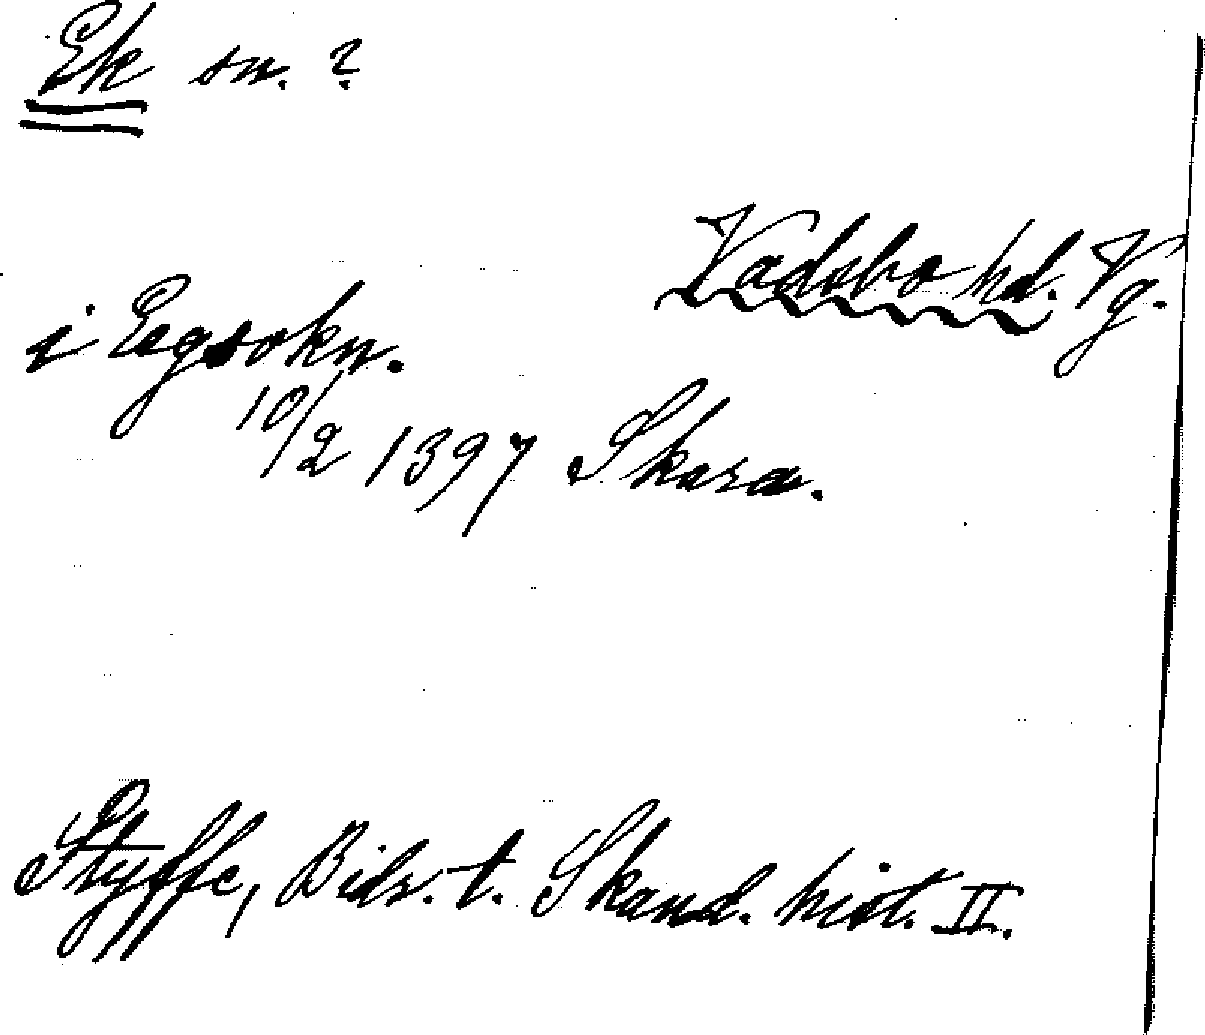 Ek sn. ?
Vadsbo hd. Vg.
i Eegsokn.
10/2 1397 Skara.
Styffe, Bidr. t. Skand. hist. II.